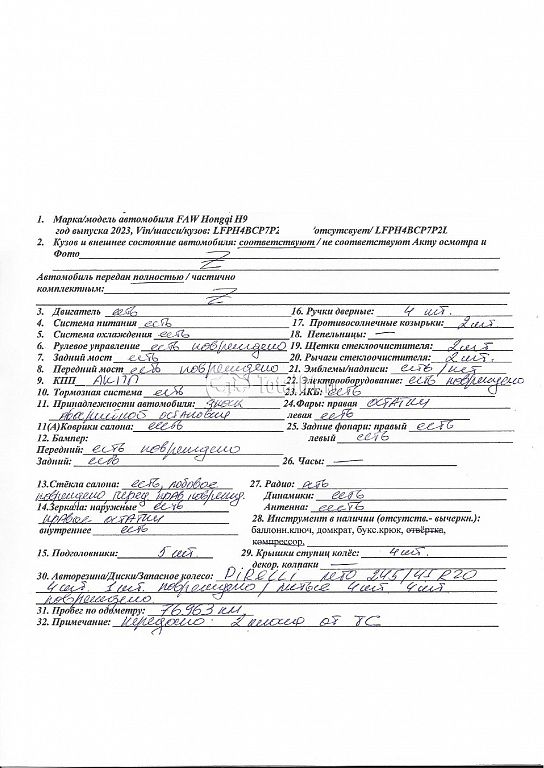 1. Марка/модель автомобиля FAW Hongqi H9
год выпуска 2023, Vin/шасси/кузов: LFPH4BCP7P2 /отсутсвует/ LFPH4BCP7P2L
2. Кузов и внешнее состояние автомобиля: соответствуют / не соответствуют Акту осмотра и
Фото Z
Автомобиль передан полностью / частично
комплектным: Z
3. Двигатель есть
16. Ручки дверные: 4 шт.
4. Система питания есть
17. Противосолнечные козырьки: 2 шт.
5. Система охлаждения есть
18. Пепельницы: —
6. Рулевое управление есть повреждено
19. Щетки стеклоочистителя: 2 шт
7. Задний мост есть
20. Рычаги стеклоочистителя: 2 шт.
8. Передний мост есть повреждено
21. Эмблемы/надписи: есть / нет
9. КПП АКПП
22. Электрооборудование: есть повреждено
10. Тормозная система есть
23. АКБ: есть
11. Принадлежности автомобиля: знак
аварийной остановки
24.Фары: правая остатки
левая есть
11(А)Коврики салона: есть
25. Задние фонари: правый есть
левый есть
12. Бампер:
Передний: есть повреждено
Задний: есть
26. Часы: —
13.Стёкла салона: есть, лобовое
повреждено перед прав поврежд.
27. Радио: есть
Динамики: есть
14.Зеркала: наружные есть
правое остатки
внутреннее есть
Антенна: есть
28. Инструмент в наличии (отсутств.- вычеркн.):
баллонн.ключ, домкрат, букс.крюк, отвёртка,
компрессор,
15. Подголовники: 5 шт.
29. Крышки ступиц колёс: 4 шт.
декор. колпаки —
30. Авторезина/Диски/Запасное колесо: Pirelli лето 245/45 R20
4 шт. 1 шт. повреждено / литые 4 шт 4 шт
повреждено
31. Пробег по одометру: 76963 км.
32. Примечание: передано: 2 ключа от ТС